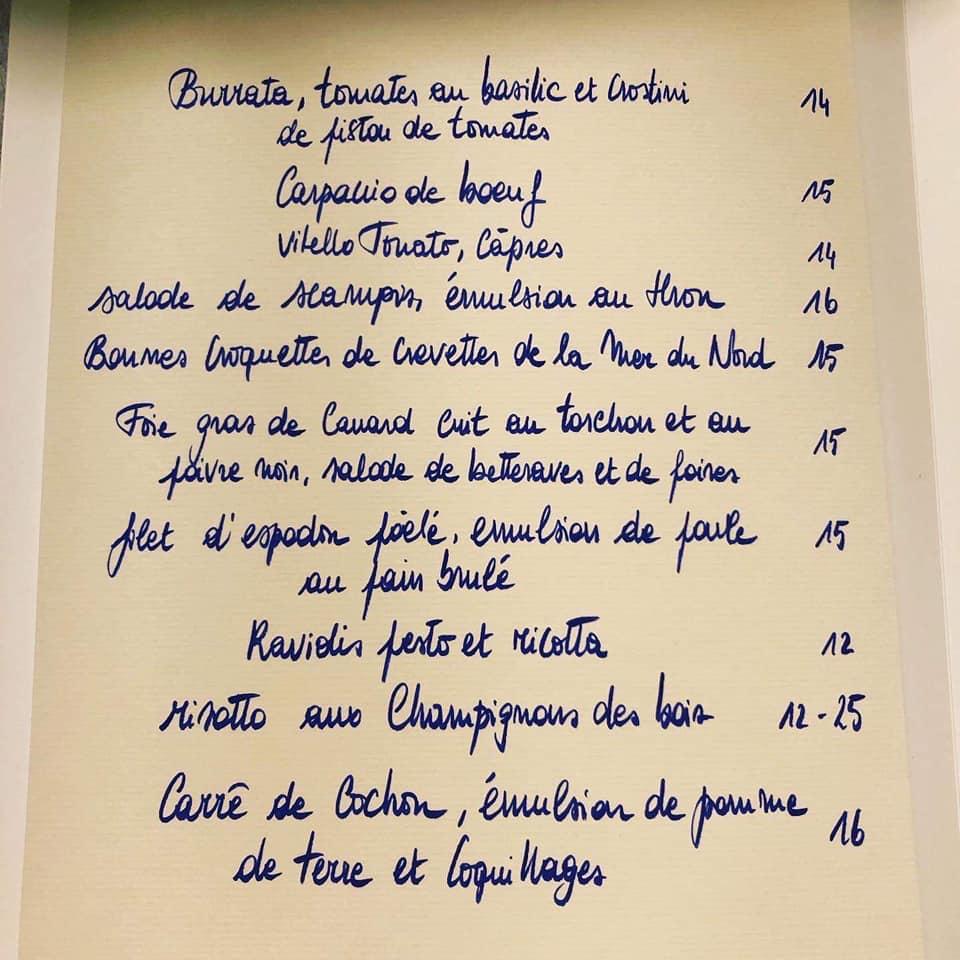 Burrata, tomates au basilic et Crostini 14
de pistou de tomates
Carpaccio de boeuf 15
Vitello Tonato, Câpres 14
salade de scampis, émulsion au thon 16
Bonnes Croquettes de Crevettes de la Mer du Nord 15
Foie gras de Canard Cuit au torchon et au 15
poivre noir, salade de betteraves et de poires
filet d'espadon poêlé, emulsion de poule 15
au pain brulé
Raviolis pesto et ricotta 12
risotto aux Champignons des bois 12-25
Carré de Cochon, émulsion de pomme 16
de terre et Coquillages